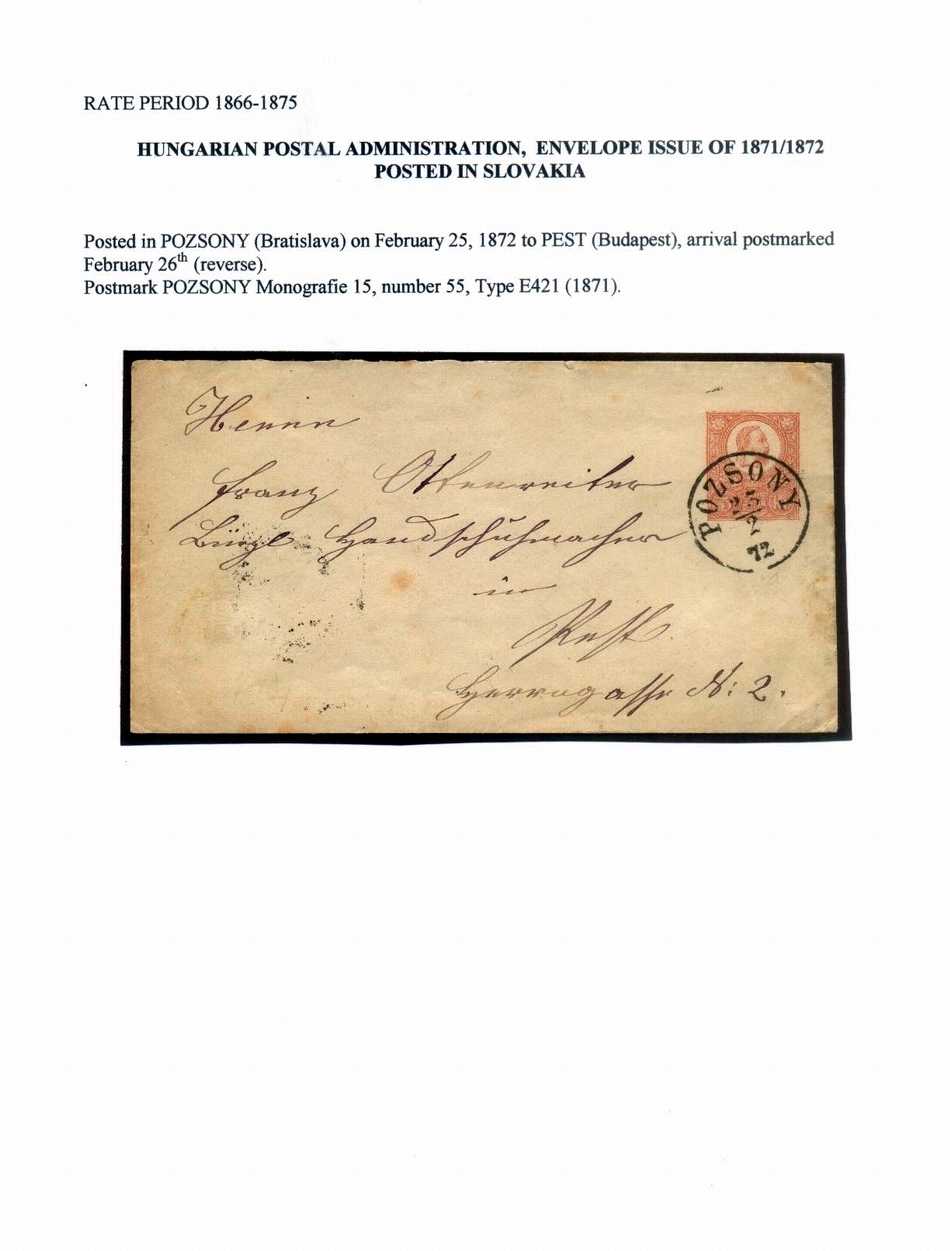 RATE PERIOD 1866-1875
HUNGARIAN POSTAL ADMINISTRATION, ENVELOPE ISSUE OF 1871/1872
POSTED IN SLOVAKIA
Posted in POZSONY (Bratislava) on February 25, 1872 to PEST (Budapest), arrival postmarked
February 26th (reverse).
Postmark POZSONY Monografie 15, number 55, Type E421 (1871).
Herrn
Franz Ottenreiter
Bürgl Handschuhmacher
in
Pest
Herrngasse N: 2.
POZSONY
25
2
72